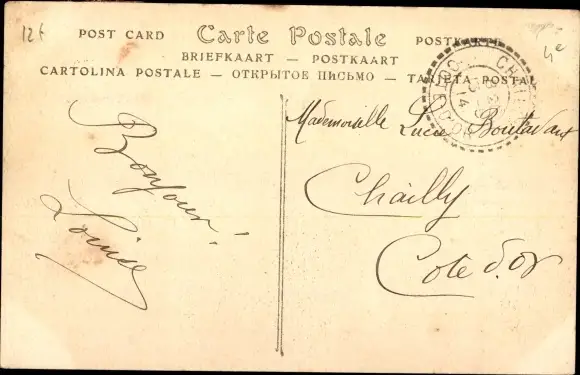 12f
POST CARD Carte Postale POSTKARTE
BRIEFKAART — POSTKAART
CARTOLINA POSTALE — ОТКРЫТОЕ ПИСЬМО — TARJETA POSTAL
4e
Mademoiselle Lucie Boutavant
Chailly
Cote d'Or
Bonjour!
Louise